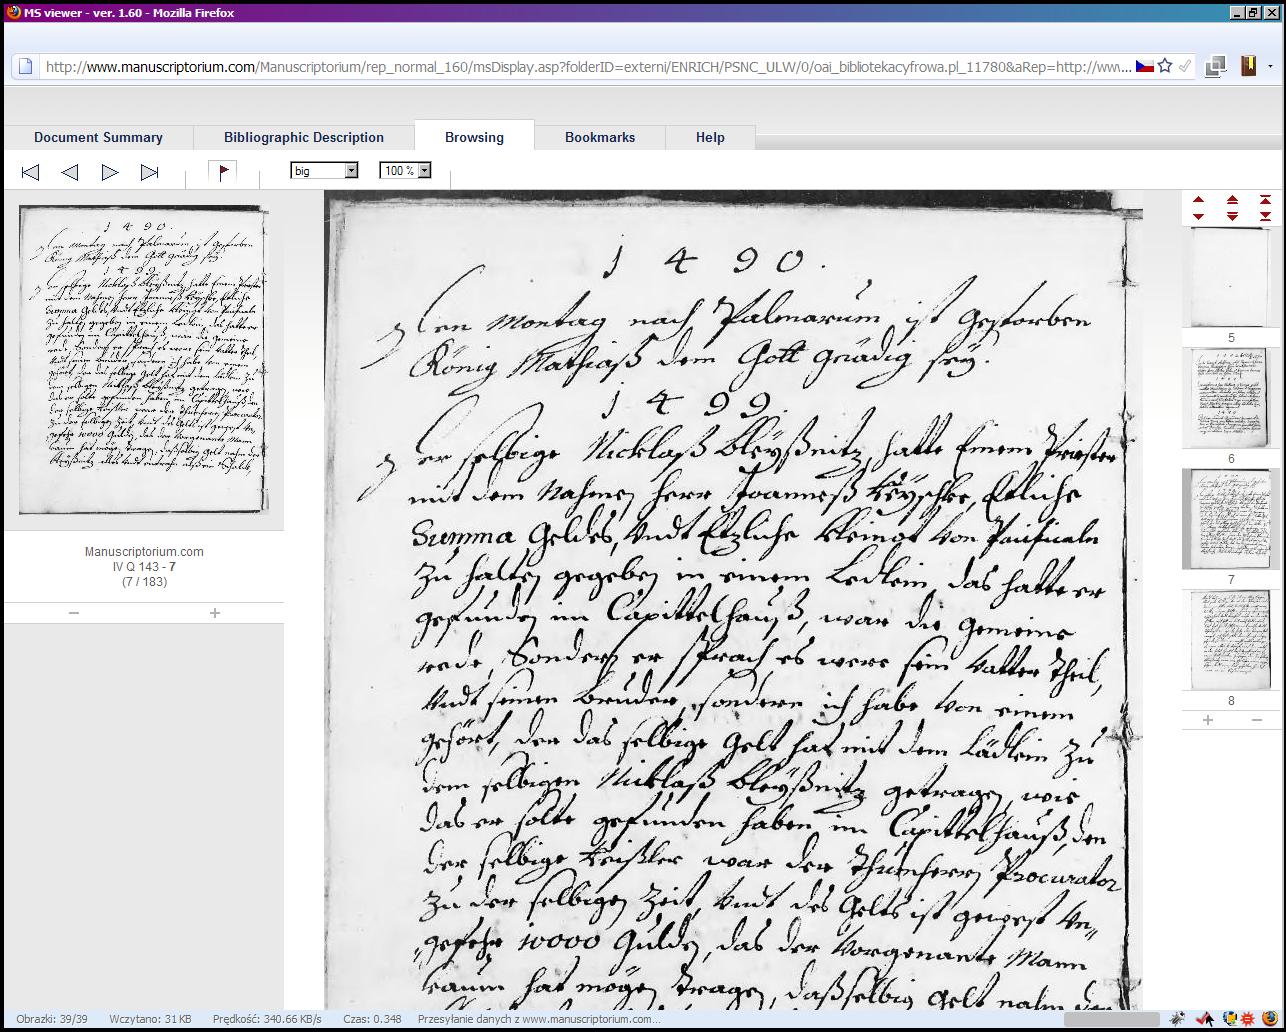 MS viewer - ver. 1.60 - Mozilla Firefox
http://www.manuscriptorium.com/Manuscriptorium/rep_normal_160/msDisplay.asp?folderID=externi/ENRICH/PSNC_ULW/0/oai_bibliotekacyfrowa.pl_11780&aRep=http://ww...
Document Summary
Bibliographic Description
Browsing
Bookmarks
Help
big
100 %
Manuscriptorium.com
IV Q 143 - 7
(7 / 183)
1490.
Den Montag nach Palmarum ist gestorben
König Mathiaß dem Gott gnädig sey.
1499.
Der selbige Nicklaß Bleÿßnitz, hatte Einem Priester
mit dem Nahmen herr Joanneß Keyschke, Etliche
Summa Geldes, Vndt Etzliche Kleinot von
Zu halten gegeben in einem Ledlein, das hatte er
gefunden im Capittelhauß, war die gemeine
rede, Sondern er sprach es were sein Vatter Theil,
Vndt seinen bruder, sondern ich habe von einem
gehört, der das selbige Gelt hat mit dem Lädlein zu
dem selbigen Nicklaß Bleÿßnitz getragen, wie
das er solte gefunden haben im Capittelhauß, den
der selbige war der Thumherrn Procurator
Zu der selbigen Zeit, Vndt des Gelts ist gewest Vn„
„gefehr 10000 Gulden, das der Vorgenante Mann
kaum hat mögen tragen, daßselbig Gelt nahm
5
6
7
8
Obrazki: 39/39
Wczytano: 31 KB
Prędkość: 340.66 KB/s
Czas: 0.348
Przesyłanie danych z www.manuscriptorium.com...